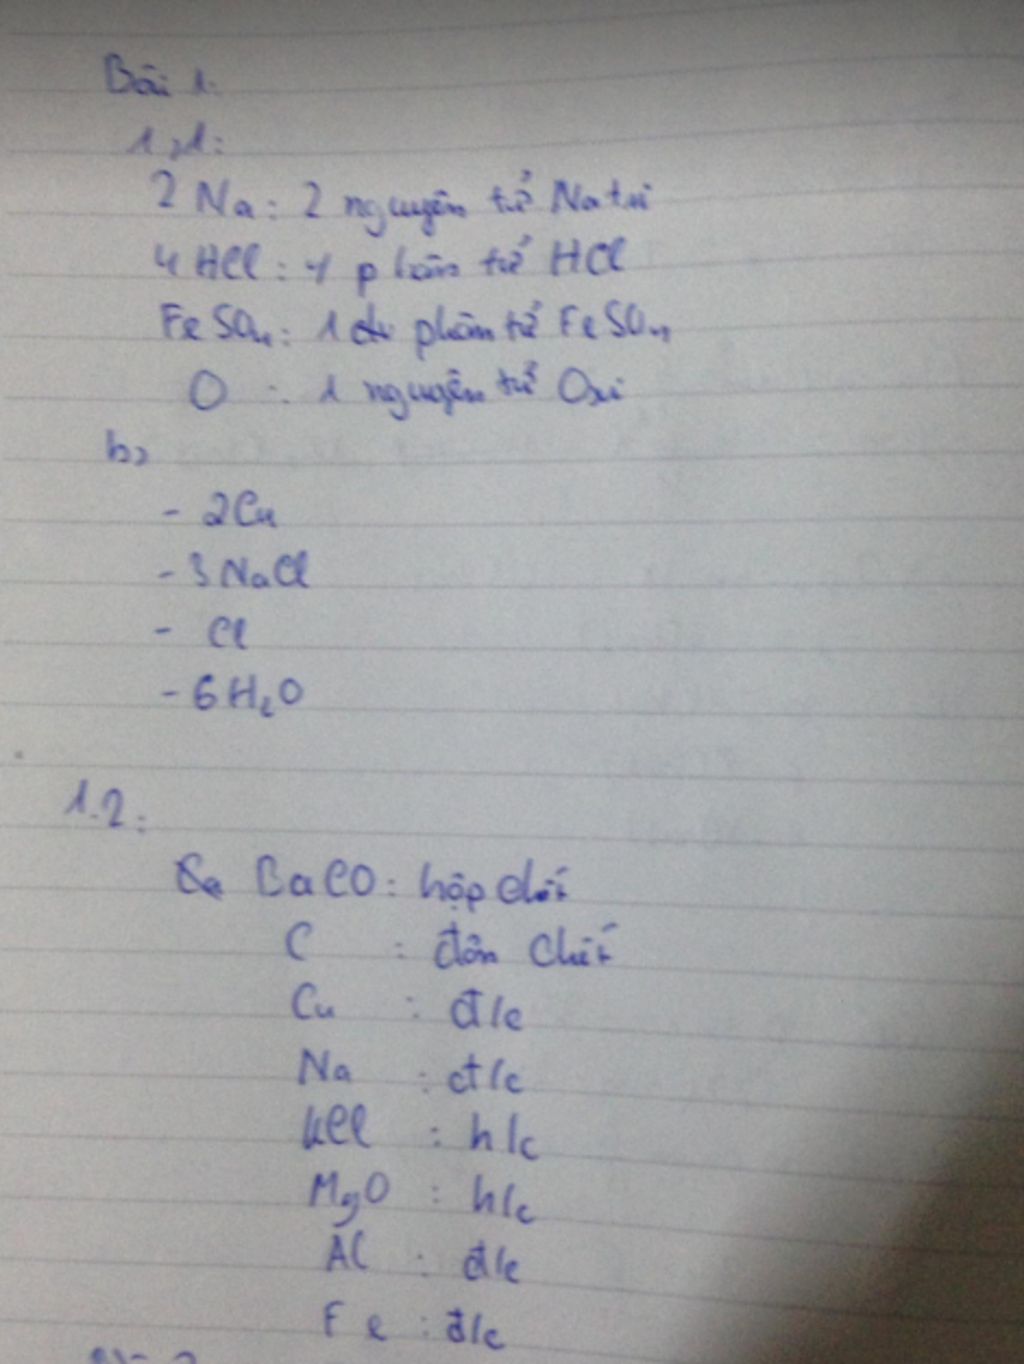 Bài 1.
1,1:
2 Na: 2 nguyên tử Natri
4 HCl: 4 phân tử HCl
FeSO4: 1 phân tử FeSO4
O : 1 nguyên tử Oxi
b,
- 2Cu
- 3 NaCl
- Cl
- 6 H2O
1.2:
BaCO: hộp chất
C : đơn chất
Cu : đ/c
Na : đ/c
KCl : h/c
MgO : h/c
Al : đ/c
Fe : đ/c